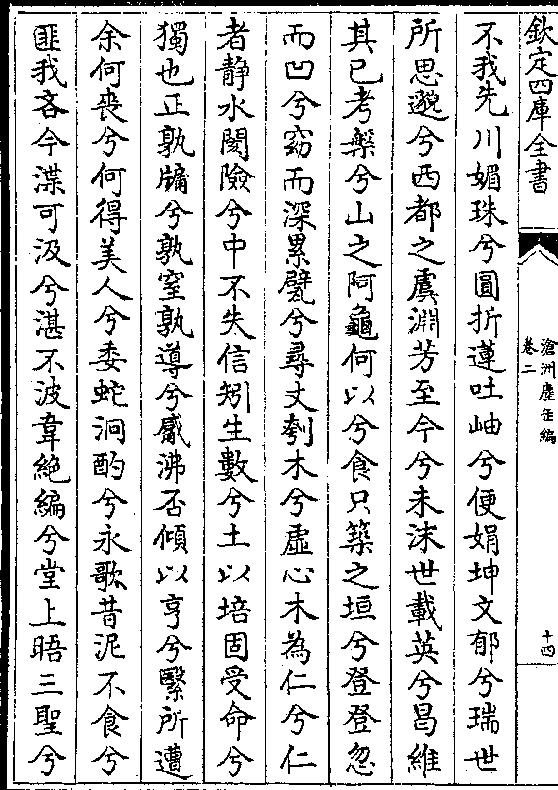 欽定四庫全書
滄洲塵缶編
卷二
十四
不我先川媚珠兮圓折蓮吐岫兮便娟坤文郁兮瑞世
所思邈兮西都之虞淵芳至今兮未沫世載英兮曷維
其已考槃兮山之阿龜何以兮食只築之垣兮登登忽
而凹兮窈而深累甓兮尋丈刳木兮虛心木為仁兮仁
者静水閟險兮中不失信矧生數兮土以培固受命兮
獨也正孰牖兮孰窒孰導兮觱沸否傾以亨兮繄所遭
余何喪兮何得美人兮委蛇泂酌兮永歌昔泥不食兮
匪我吝今渫可汲兮湛不波韋絶編兮堂上晤三聖兮